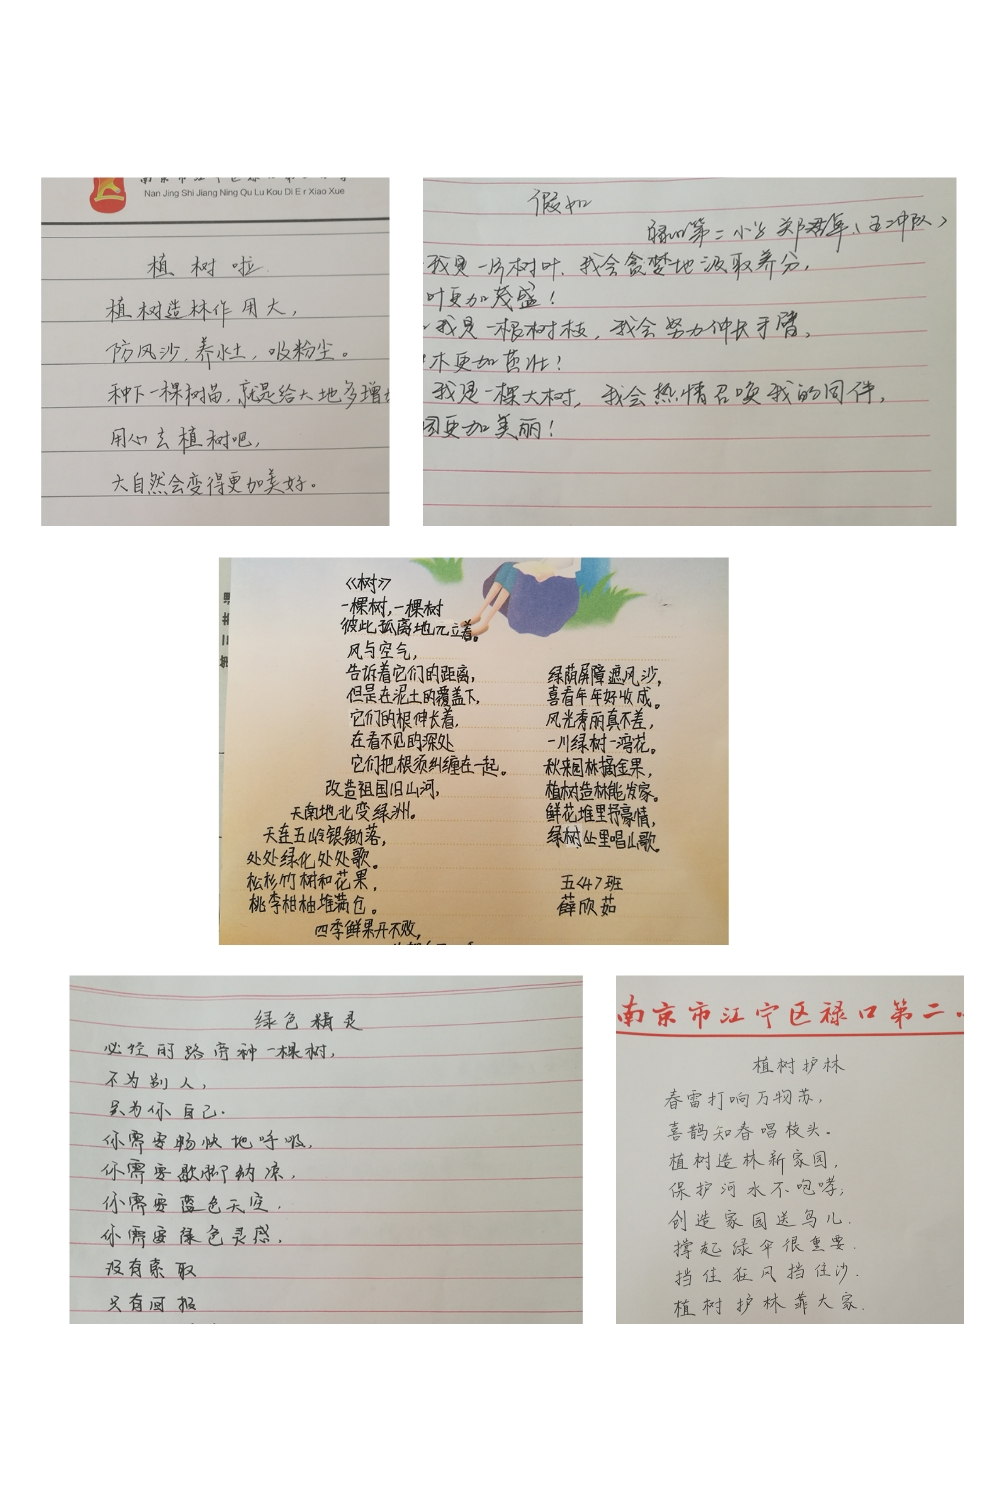 Nan Jing Shi Jiang Ning Qu Lu Kou Di E r Xiao Xue
植树啦
植树造林作用大，
防风沙，养水土，吸粉尘。
种下一棵树苗，就是给大地多增
用心去植树吧，
大自然会变得更加美好。
假如
禄口第二小学 郑君年（五中队）
我是一片树叶，我会贪婪地汲取养分，
叶更加茂盛！
我是一根树枝，我会努力伸长手臂，
木更加茁壮！
我是一棵大树，我会热情召唤我的同伴，
更加美丽！
《树》
一棵树，一棵树
彼此孤离地兀立着。
风与空气，
告诉着它们的距离，
但是在泥土的覆盖下，
它们的根伸长着，
在看不见的深处
它们把根须纠缠在一起。
改造祖国旧山河，
天南地北变绿洲。
天连五岭银锄落，
处处绿化处处歌。
松杉竹树和花果，
桃李柑柚堆满仓。
四季鲜果丹不败，
绿荫屏障遮风沙，
喜看年年好收成。
风光秀丽真不差，
一川绿树一湾花。
秋来园林摘金果，
植树造林能发家。
鲜花堆里抒豪情，
绿树丛里唱山歌。
五<4>班
薛欣茹
绿色精灵
必经的路旁种一棵树，
不为别人，
只为你自己.
你需要畅快地呼吸，
你需要歇脚纳凉，
你需要蓝色天空.
你需要绿色灵感，
没有索取
只有回报
南京市江宁区禄口第二小
植树护林
春雷打响万物苏，
喜鹊知春唱枝头。
植树造林新家园，
保护河水不咆哮；
创造家园送鸟儿.
撑起绿伞很重要.
挡住狂风挡住沙.
植树护林靠大家.